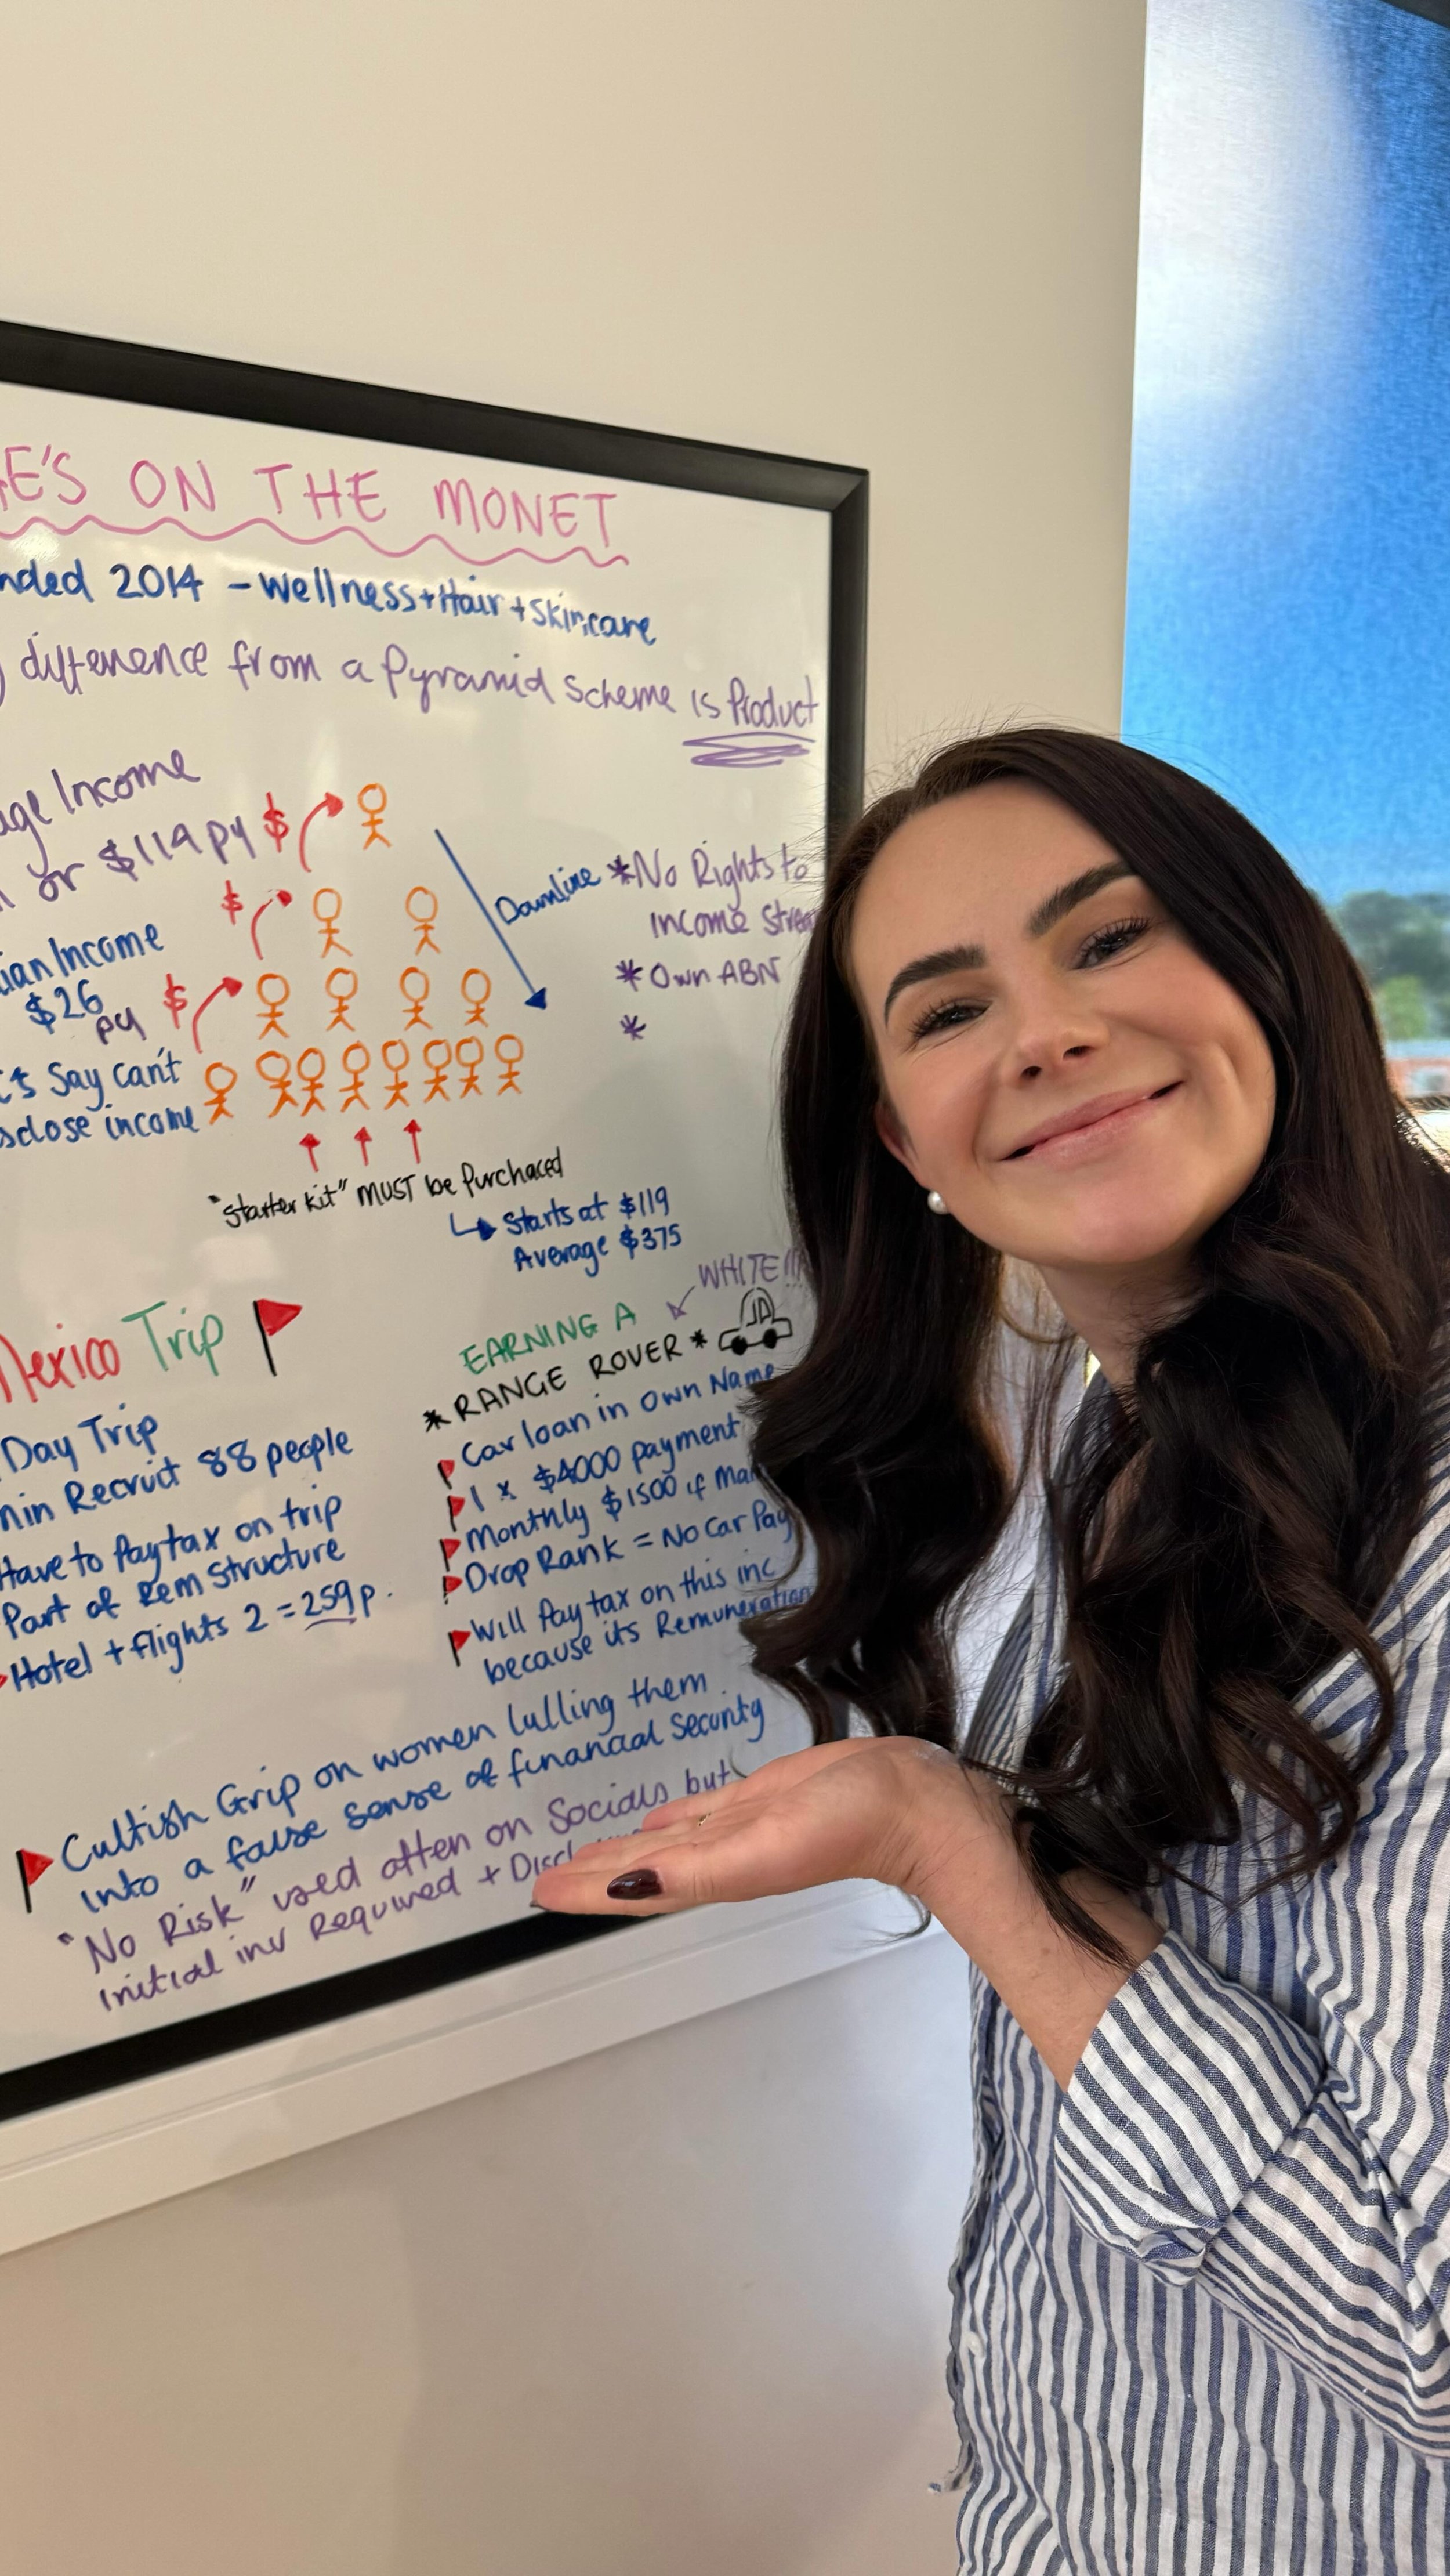 E'S ON THE MONET
nded 2014 - Wellness+Hair+Skincare
difference from a Pyramid Scheme is Product
age Income
or $119 py $
$
ian Income
$26
py
$
Say can't
sclose income
Downline
*No Rights to
Income Stream
*Own ABN
*
"starter kit" MUST be Purchaced
↳ Starts at $119
Average $375
Mexico Trip
Day Trip
min Recruit 88 people
Have to Pay tax on trip
Part of Rem Structure
Hotel + flights 2 = 259p.
WHITE!!!
EARNING A
*RANGE ROVER*
Car loan in Own Name
1 x $4000 payment
Monthly $1500 if
Drop Rank = No Car Pay
Will Pay tax on this inc
because its Remuneration
Cultish Grip on women lulling them
into a false sense of financial security
"No Risk" used often on Socials but
initial inv Required + Discl